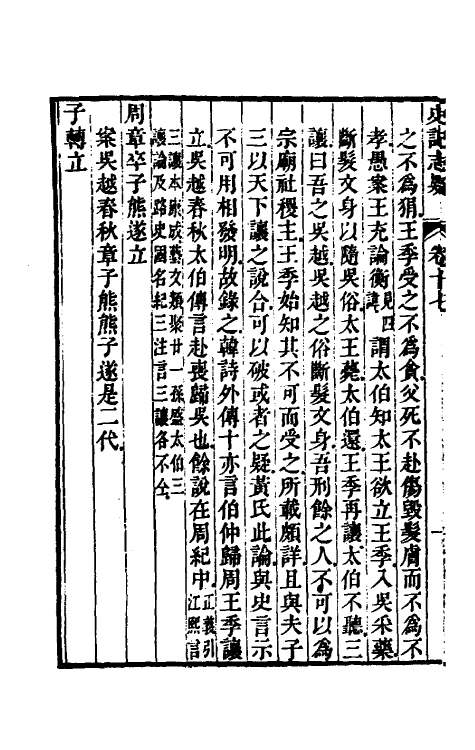 史記志疑 卷十七 一
之不爲狷王季受之不爲貪父死不赴傷毀髮膚而不爲不
孝愚案王充論衡四諱見謂太伯知太王欲立王季入吳采藥
斷髮文身以隨吳俗太王薨太伯還王季再讓太伯不聽三
讓曰吾之吳越吳越之俗斷髮文身吾刑餘之人不可以爲
宗廟社稷主王季始知其不可而受之所載頗詳且與夫子
三以天下讓之說合可以破或者之疑黃氏此論與史言示
不可用相發明故錄之韓詩外傳十亦言伯仲歸周王季讓
立吳越春秋太伯傳言赴喪歸吳也餘說在周紀中正義引江熙言
三讓本臧榮藝文類聚廿一孫盛太伯三
讓論及路史國名紀三注言三讓各不仝
周章卒子熊遂立
案吳越春秋章子熊熊子遂是二代
子轉立